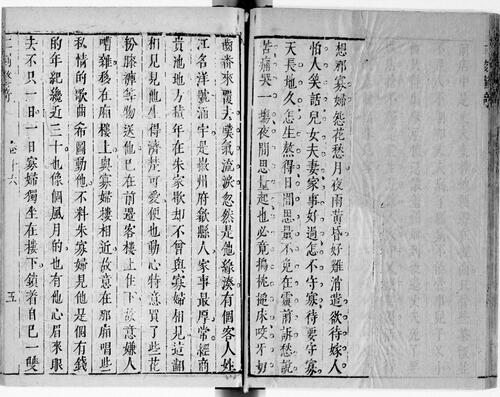 想那寡婦怨花愁月夜雨黃昏好難消遣欲待嫁人
怕人笑話兒女夫妻家事好過怎不守寡待要守寡
天長地久怎生熬得日間思量不免在靈前訴愁說
苦痛哭一場夜間思量起也必竟搗枕搥床咬牙切
齒番來覆去嘆氣流淚忽然是他緣湊有個客人姓
江名洋號涌宇是徽州府歙縣人家事最厚常經商
貴池地方積年在朱家歇却不曾與寡婦相見這翻
相見見他生得濟楚可愛便也動心特意買了些花
粉膝褲等物送他已在前邊客樓上住下故意嫌人
嘈雜移在廂樓上與寡婦樓相近故意在那廂唱些
私情的歌曲希圖動他不料朱寡婦見他是個有錢
的年紀幾近三十也像個風月的也有他心眉來眼
去不只一日一日寡婦獨坐在樓下鎖着自已一雙
卷十六
五